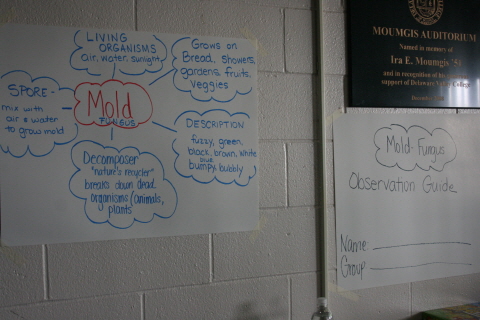 LIVING
ORGANISMS
air, water, sunlight
Grows on
Bread, showers,
gardens, fruits,
veggies
SPORE -
mix with
air & water
to grow mold
Mold
FUNGUS
DESCRIPTION
fuzzy, green,
black, brown, white
blue
bumpy, bubbly
Decomposer
"nature's recycler"
breaks down dead
organisms (animals,
plants
MOUMGIS AUDITORIUM
Named in memory of
Ira E. Moumgis '51
and in recognition of his
support of Delaware Valley College
Mold-Fungus
Observation Guide
Name
Group